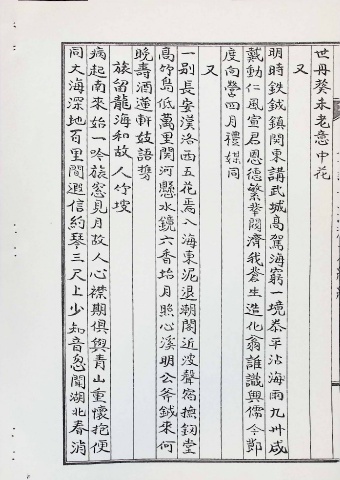 世毋癸未老意中花
又
明時鉄鉞鎮関東講武城高駕海窮一境泰平沾海雨九州咸
戴動仁風宣君恩德繁華閣濟我蒼生造化翁誰識興儒今鄧
度向營四月禮媒同
又
一別長安漢洛西五花馬入海東泥退潮閣近波聲宿撫釰堂
高竹島低萬里関河懸水鏡六香坮月照心溪明公斧鉞來何
晚壽酒蓮軒妓語鶯
旅留龍海和故人竹坡
病起南來始一吟旅窓見月故人心襟期俱與青山重懷抱便
同大海深地百里間邀信約琴三尺上少知音忽聞湖北春消